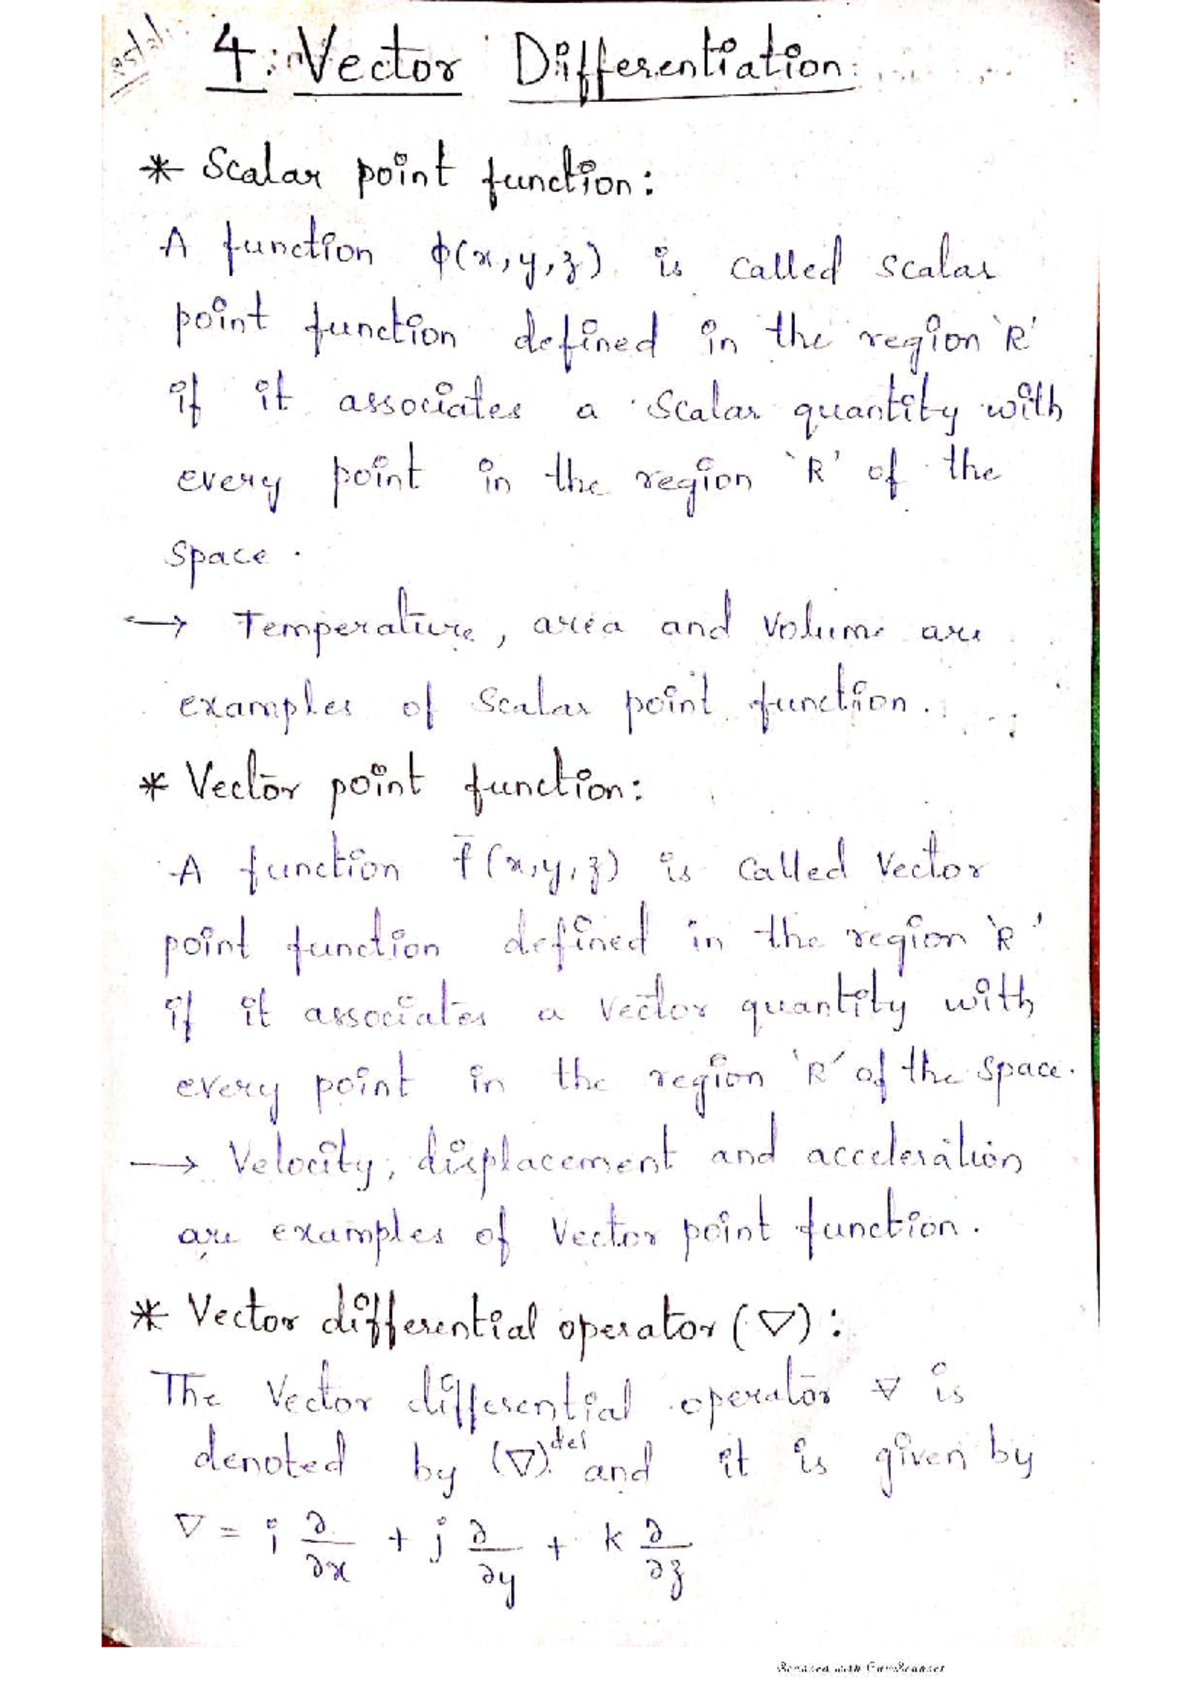 4. Vector Differentiation
* Scalar point function:
A function ϕ(x,y,z) is called scalar
point function defined in the region `R'
if it associates a scalar quantity with
every point in the region `R' of the
space.
→ Temperature, area and volume are
examples of scalar point function.
* Vector point function:
A function f̄(x,y,z) is called vector
point function defined in the region `R'
if it associates a vector quantity with
every point in the region 'R' of the space.
→ Velocity, displacement and acceleration
are examples of vector point function.
* Vector differential operator (∇):
The vector differential operator ∇ is
denoted by (∇) del and it is given by
∇ = i ∂/∂x + j ∂/∂y + k ∂/∂z
Scanned with CamScanner